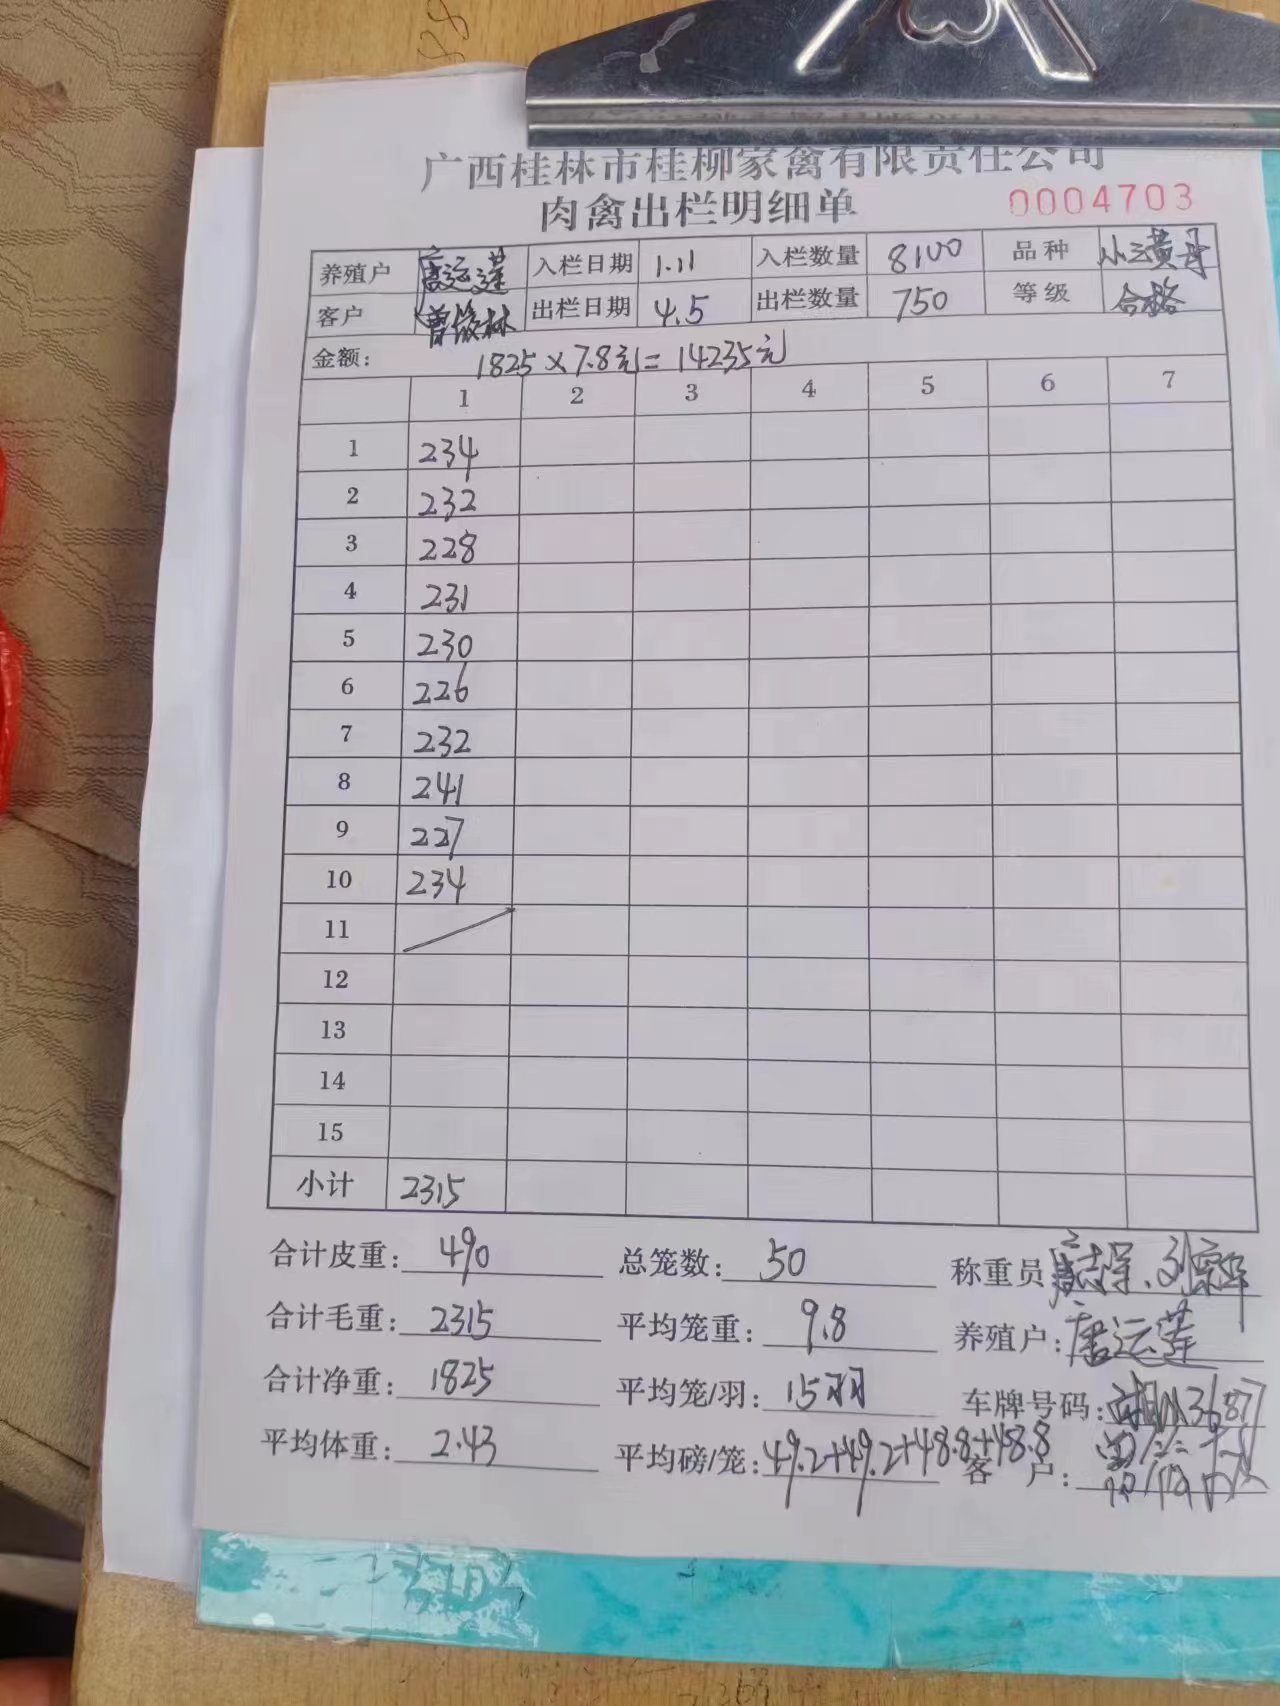 广西桂林市桂柳家禽有限责任公司
肉禽出栏明细单 0004703
养殖户 唐运莲 入栏日期 1.11 入栏数量 8100 品种 小三黄母
客户 曾俊林 出栏日期 4.5 出栏数量 750 等级 合格
金额: 1825×7.8元=14235元
1 2 3 4 5 6 7
1 234
2 232
3 228
4 231
5 230
6 226
7 232
8 241
9 227
10 234
11
12
13
14
15
小计 2315
合计皮重: 490 总笼数: 50 称重员
合计毛重: 2315 平均笼重: 9.8 养殖户: 唐运莲
合计净重: 1825 平均笼/羽: 15羽 车牌号码:
平均体重: 2.43 平均磅/笼: 49.2+49.2+48.8+48.8 客户: